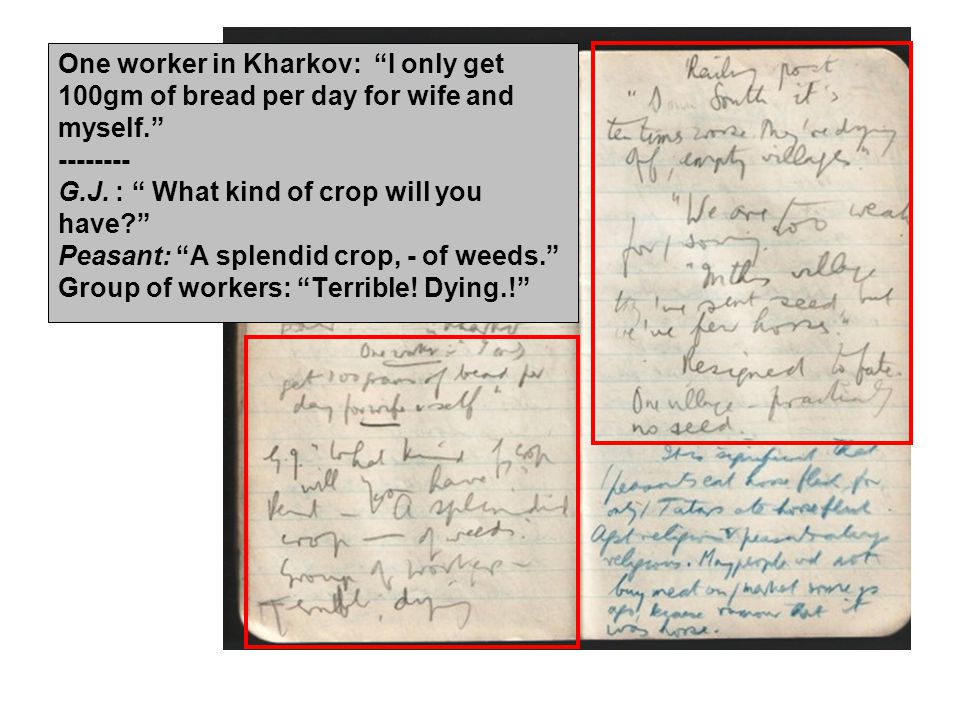 One worker in Kharkov: “I only get
100gm of bread per day for wife and
myself.”
--------
G.J. : “ What kind of crop will you
have?”
Peasant: “A splendid crop, - of weeds.”
Group of workers: “Terrible! Dying.!”
in Kharkov
One worker :- " I only
get 100 grams of bread per
day for wife & self"
"What kind of crop
will you have?"
A splendid
crop — of weeds."
Group of workers —
Terrible, dying
Railway post
"Down South it's
ten times worse. They're dying
off, empty villages"
"We are too weak
for / sowing.
"In this village
they've sent seed but
we've few horses."
Resigned to fate.
One village — practically
no seed.
It is significant that
/ peasants eat horse flesh, for
only / Tatars ate horseflesh.
Agst religion & peasants always
religious. Many people wd not
buy meat on / market some yrs
ago, because rumour that it
was horse.